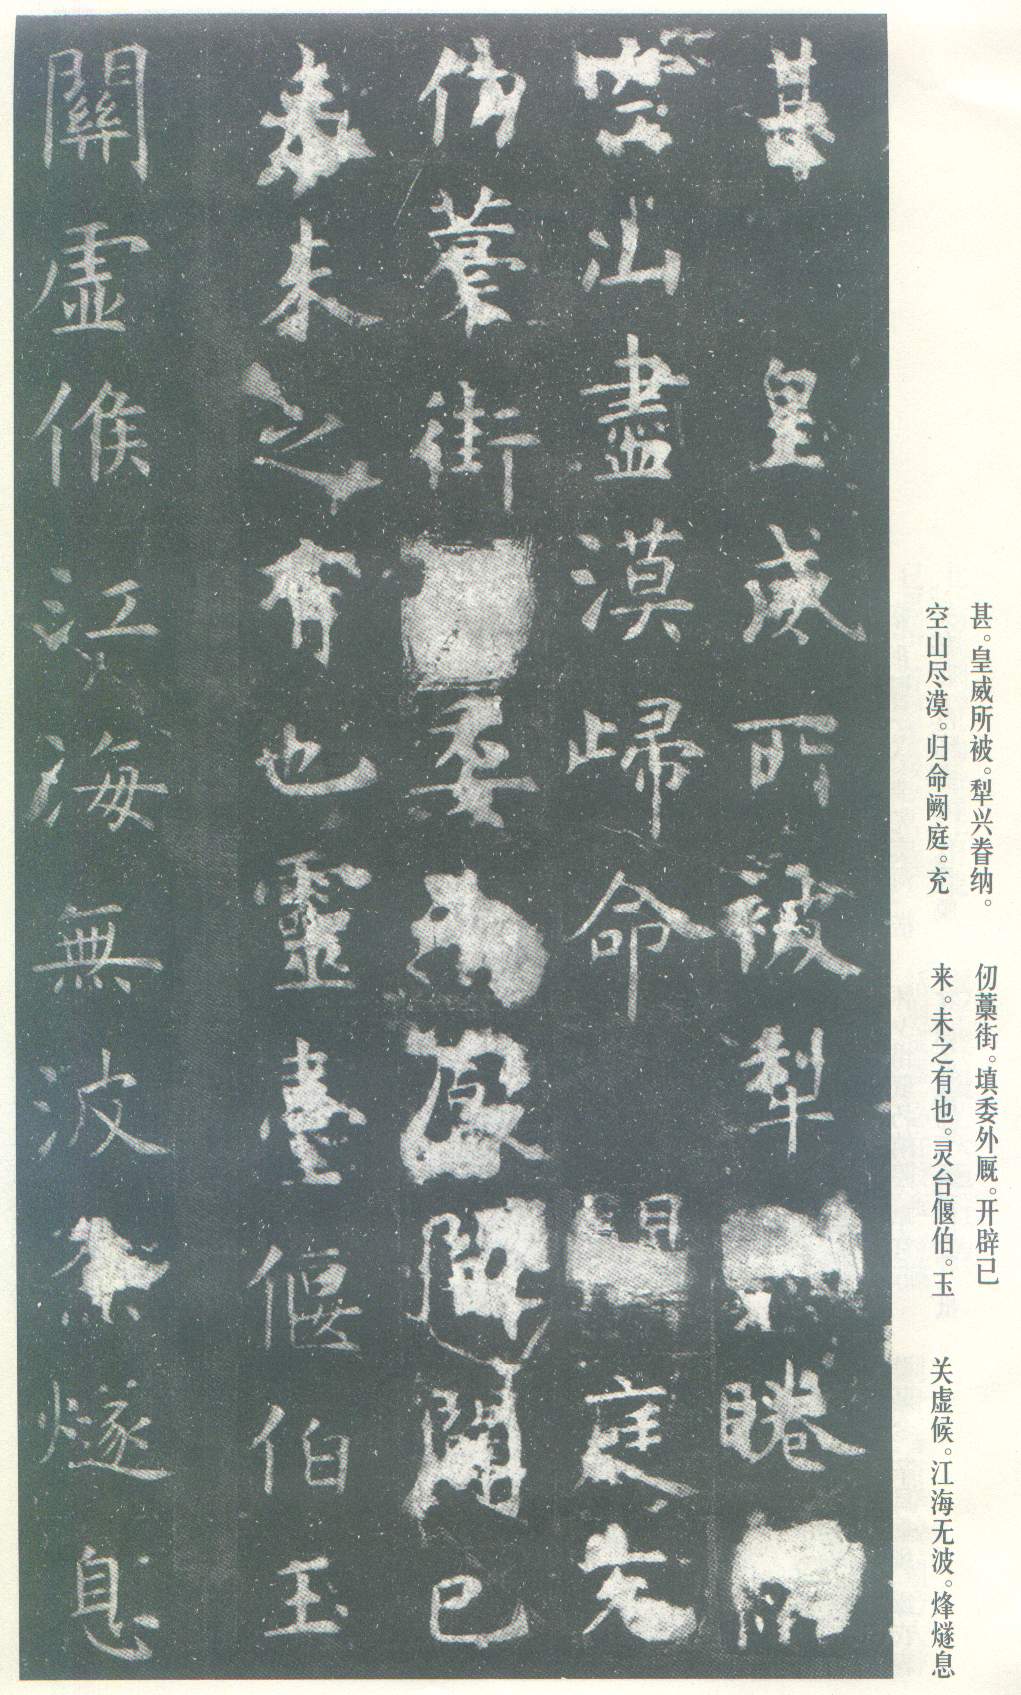 甚。皇威所被。犁兴眷纳。
空山尽漠。归命阙庭。充
仞藁街。填委外厩。开辟已
来。未之有也。灵台偃伯。玉
关虚候。江海无波。烽燧息
甚皇威所被犁睠
空山盡漠歸命庭充
仞藁街委廐開闢已
來未之有也靈臺偃伯玉
關虛候江海無波烽燧息